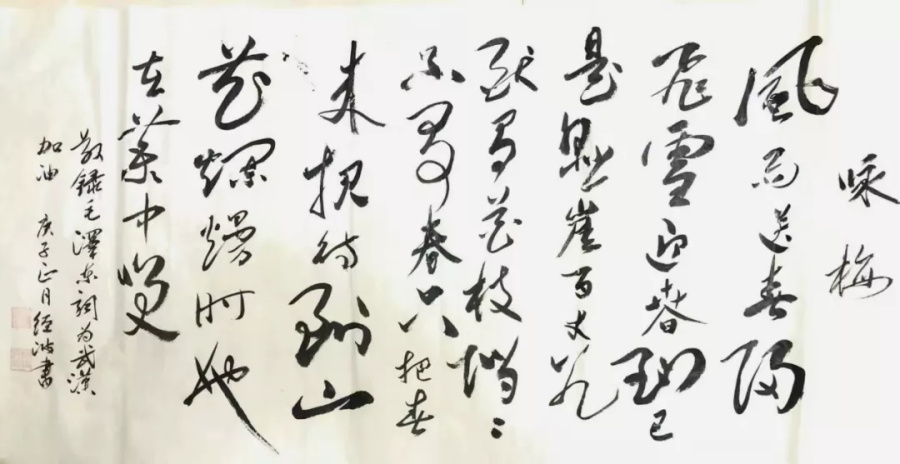 咏梅
風雨送春歸
飛雪迎春到已
是懸崖百丈冰
猶有花枝俏〻
不爭春只把春
来报待到山
花爛熳时她
在叢中笑
敬錄毛澤东詞为武漢
加油 庚子正月 經波書